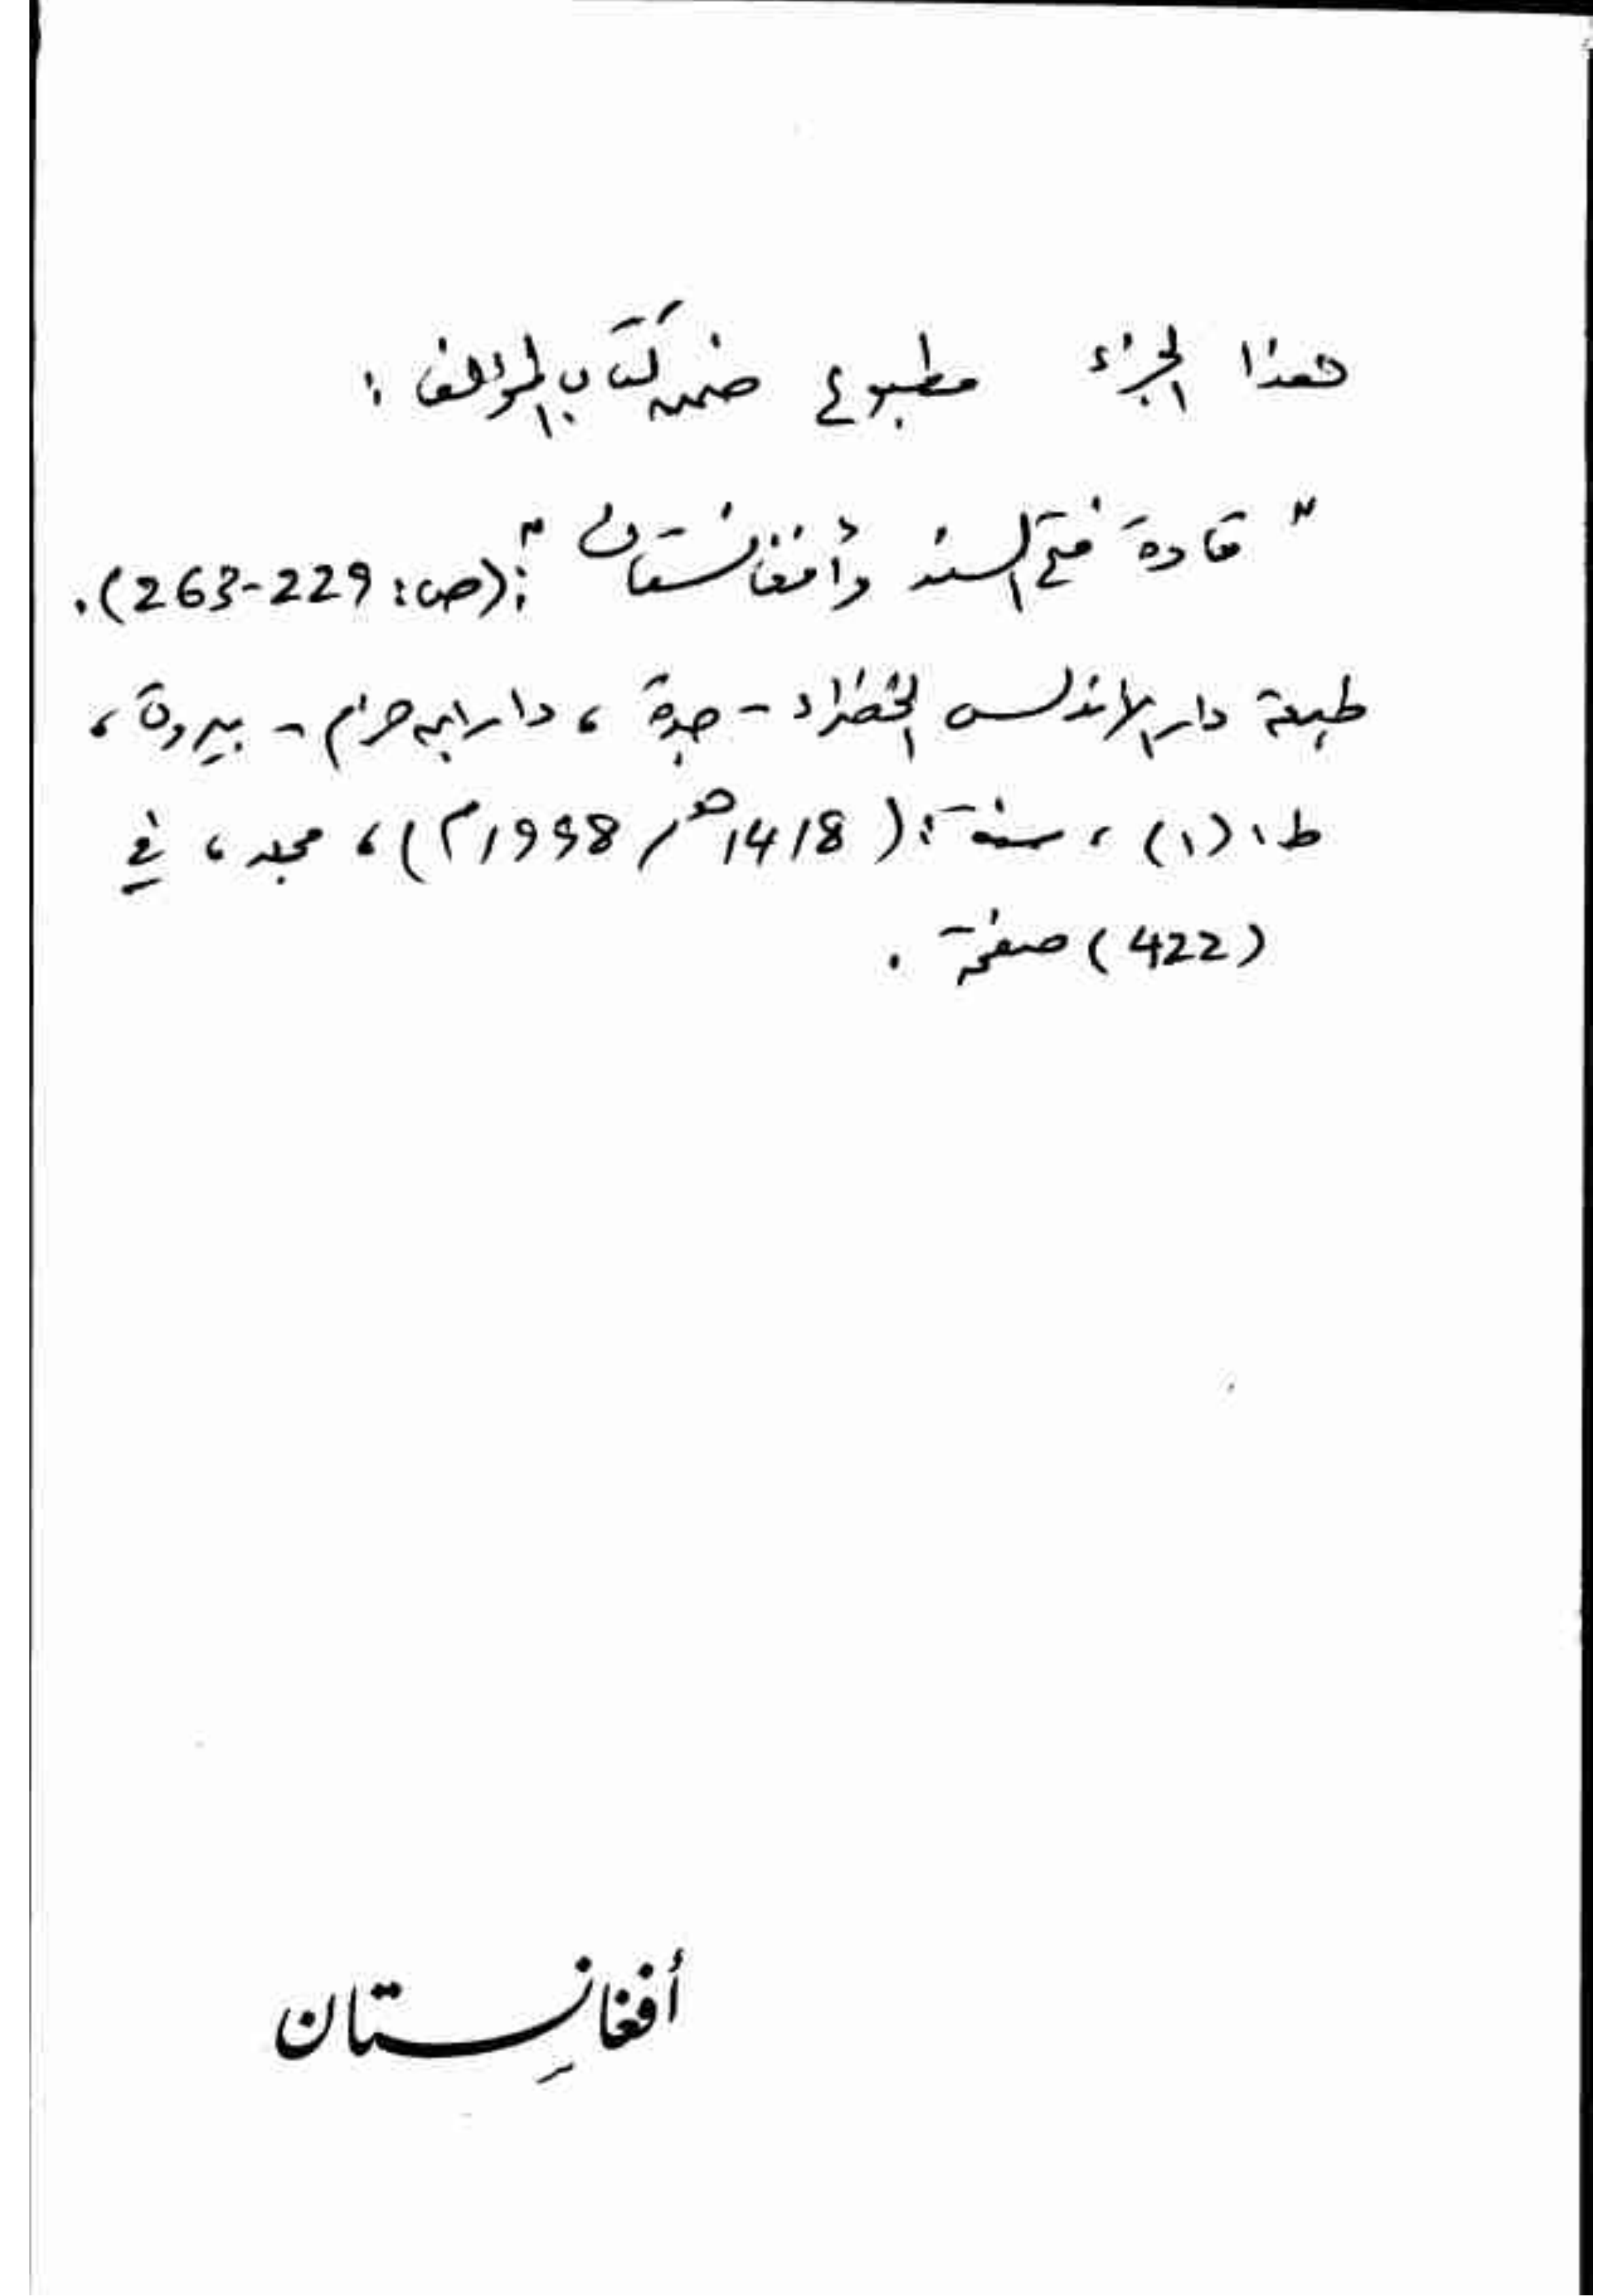 هذا الجزء مطبوع ضمن كتاب المؤلف :
" قادة فتح السند وأفغانستان ": (ص: 229-263).
طبعة دار الأندلس الخضراء - جدة ، دار ابن حزم - بيروت ،
ط، (١) ، سنة: ( 1418هـ / 1998م ) ، مجلد ، في
(422) صفحة .
أفغانِستان